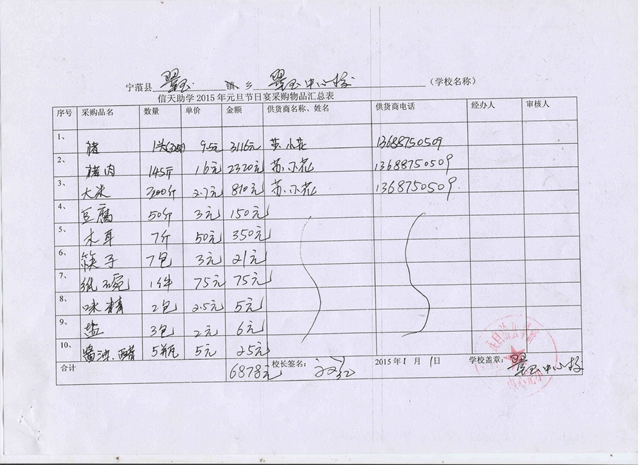 宁蒗县 翠玉 镇 乡 翠玉中心校 (学校名称)
信天助学2015年元旦节日宴采购物品汇总表
序号 采购品名 数量 单价 金额 供货商名称、姓名 供货商电话 经办人 审核人
1、 猪 1头 9.5元 3116元 苏小花 13688750509
2、 猪肉 145斤 16元 2320元 苏小花 13688750509
3、 大米 300斤 2.7元 810元 苏小花 13688750509
4、 豆腐 50斤 3元 150元
5、 木耳 7斤 50元 350元
6、 筷子 7包 3元 21元
7、 纸碗 1件 75元 75元
8、 味精 2包 2.5元 5元
9、 盐 3包 2元 6元
10、 酱油、醋 5瓶 5元 25元
合计 6878元 校长签名: 2015年1月1日 学校盖章: 翠玉中心校